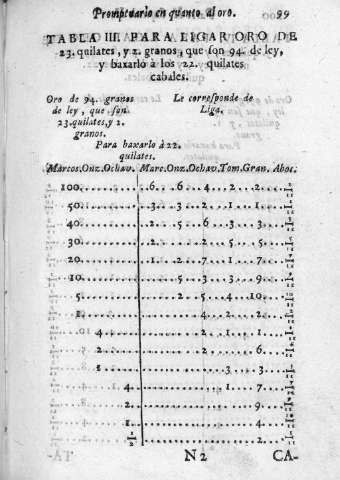 Promptuario en quanto al oro. 99
TABLA III. PARA LIGAR ORO DE
23. quilates, y 2. granos, que son 94. de ley,
y baxarlo à los 22. quilates
cabales.
Oro de 94. granos
de ley, que son
23. quilates, y 2.
granos.
Le corresponde de
Liga.
Para baxarlo à 22.
quilates.
Marcos. Onz. Ochav. Marc. Onz. Ochav. Tom. Gran. Aboc.
100. 6. 6. 4. 2. 2.
50. 3. 3. 2. 1. 1.
40. 2. 5. 6. 3. 3.
30. 2. 2. 5. 5.
20. 1. 2. 7. 1. 7.
10. 5. 3. 3. 9.
5. 2. 5. 4. 10.
1. 4. 2. 2.
4. 2. 1. 1.
2. 6.
1. 3. 3.
4. 1. 7.
2. 9.
1. 4.
1/2 2.
N 2 CA-